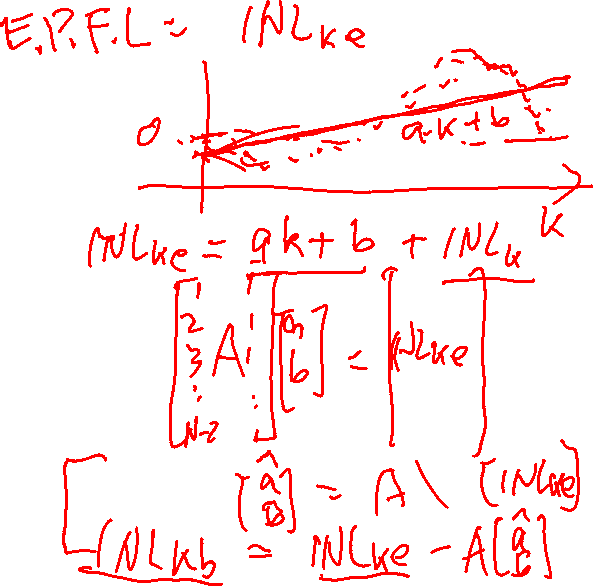 E.P.F.L = INLke
0
a·k+b
k
INLke = ak + b + INLk
[1 1
2 1
3 A 1
: :
N-2 ] [a b] = [INLke]
[â b̂] = A \ [INLke]
INLkb = INLke - A[â b̂]